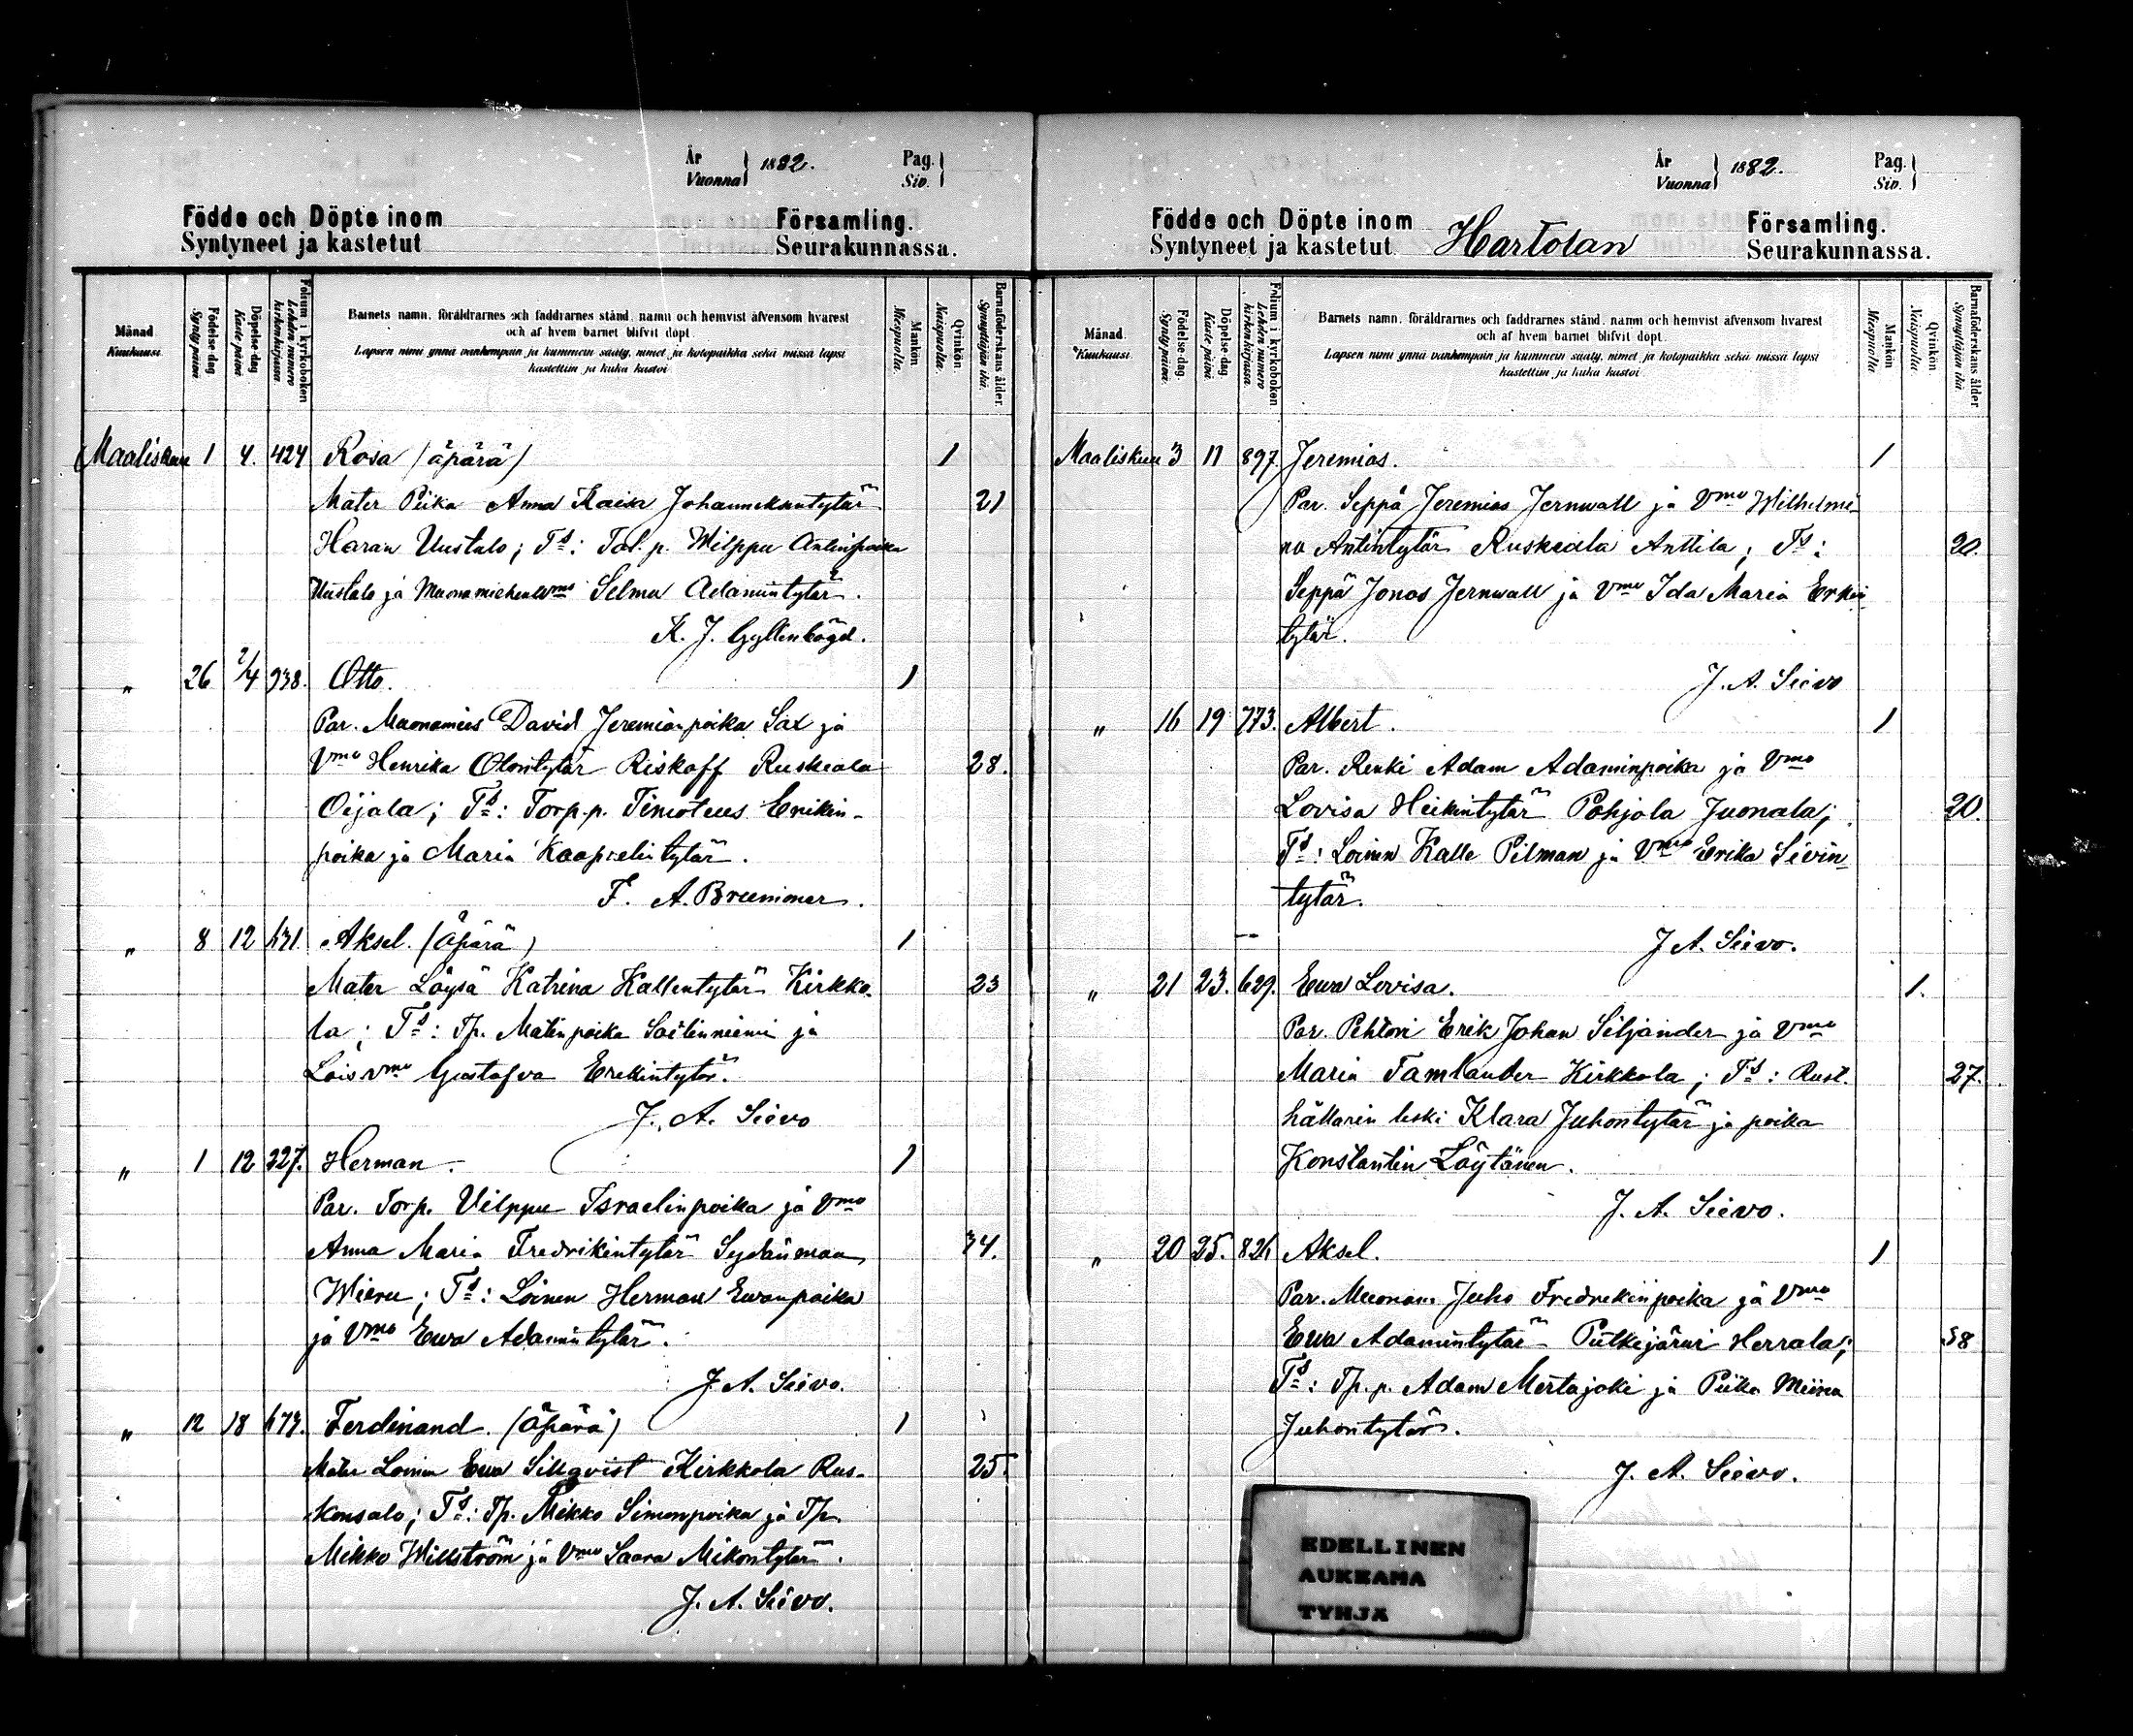 År
Vuonna } 1882. Pag.
Siv. }
Födde och Döpte inom Församling.
Syntyneet ja kastetut Seurakunnassa.
Månad
Kuukausi.
Födelse-dag
Synty päivä
Döpelse-dag
Kaste päivä
Folium i kyrkoboken
Lehden numero
kirkonkirjassa.
Barnets namn, föräldrarnes och faddrarnes stånd, namn och hemvist äfvensom hvarest
och af hvem barnet blifvit döpt.
Lapsen nimi ynnä vanhempain ja kummein sääty, nimet ja kotopaikka sekä missä lapsi
kastettiin ja kuka kastoi
Mankön
Miespuolia.
Qvinkön.
Naispuolia.
Barnaföderskans ålder.
Synnyttäjän ikä.
Maaliskuu 1 4. 424 Rosa (äpärä) 1
Mater Piika Anna Kaisa Johanneksentytär 21
Haran Uustalo; Ts: Tal. p. Wilppu Antinpoika
Uustalo ja Muonamiehen vmo Selma Adamintytär.
K. J. Gyllenbögel.
„ 26 2/4 938. Otto. 1
Par. Muonamies David Jeremianpoika Sax ja
Vmo Henrika Olontytär Riskaff Ruskeala 28.
Oijala; Ts: Torp. p. Timoteus Erikin-
poika ja Maria Kaaprielintytär.
F. A. Brummer.
„ 8 12 631 Aksel. (Äpärä) 1
Mater Löysä Katrina Kallentytär Kirkko- 23
la; Ts: Tp. Matinpoika Saitinniemi ja
Lois vmo Gustafva Erekintytär.
J. A. Siévo
„ 1 12 327. Herman. 1
Par. Torp. Vilppu Israelinpoika ja Vmo
Anna Maria Fredrikintytär Sydänmaa 34.
Wieru; Ts: Loinen Herman Ewanpoika
ja Vmo Ewa Adamintytär.
J. A. Siévo.
„ 12 18 673. Ferdinand. (Äpärä) 1
Mater Loinen Ewa Sillqvist Kirkkola Rus- 25.
konsalo; Ts: Tp. Mikko Simonpoika ja Tp.
Mikko Willström ja Vmo Saara Mikontytär.
J. A. Siévo.
År
Vuonna } 1882. Pag.
Siv. }
Födde och Döpte inom Församling.
Syntyneet ja kastetut Hartolan Seurakunnassa.
Månad
Kuukausi.
Födelse-dag.
Synty päivä.
Döpelse-dag.
Kaste päivä
Folium i kyrkoboken
Lehden numero
kirkonkirjassa.
Barnets namn, föräldrarnes och faddrarnes stånd, namn och hemvist äfvensom hvarest
och af hvem barnet blifvit döpt.
Lapsen nimi ynnä vanhempain ja kummein sääty, nimet ja kotopaikka sekä missä lapsi
kastettiin ja kuka kastoi
Mankön
Miespuolia
Qvinkön
Naispuolia.
Barnaföderskans ålder
Synnyttäjän ikä.
Maaliskuu 3 11 897. Jeremias. 1
Par. Seppä Jeremias Jernwall ja Vmo Wilhelmi
na Antintytär Ruskeala Anttila; Ts: 20.
Seppä Jonas Jernwall ja Vmo Ida Maria Erkin
tytär.
J. A. Siévo
„ 16 19 773. Albert. 1
Par. Renki Adam Adaminpoika ja Vmo
Lovisa Heikintytär Pohjola Juonala; 20.
Ts: Loinen Kalle Pilman ja Vmo Erika Sivin
tytär.
J. A. Siévo.
„ 21 23. 629. Ewa Lovisa. 1.
Par. Pehtori Erik Johan Siljander ja Vmo
Maria Tamlander Kirkkola; Ts: Rust. 27.
hållarin leski Klara Juhontytär ja poika
Konstantin Löytänen.
J. A. Siévo.
„ 20 25. 826 Aksel. 1
Par. Muonam. Juho Fredrekinpoika ja Vmo
Ewa Adamintytär Putkijärvi Herrala; 38
Ts: Tp. p. Adam Mertajoki ja Piika Miina
Juhontytär.
J. A. Siévo.
EDELLINEN
AUKEAMA
TYHJÄ